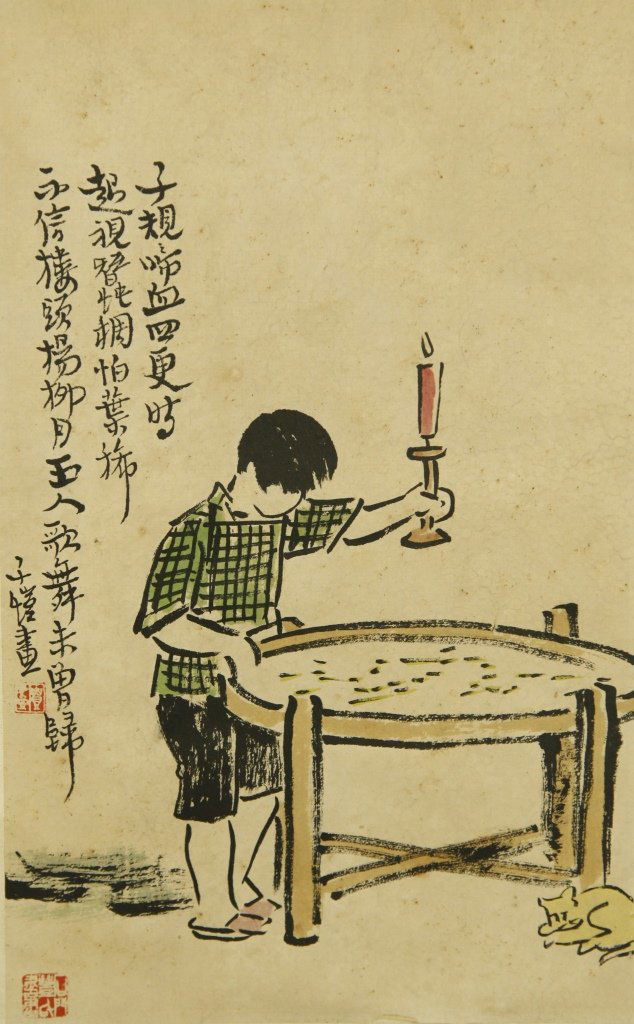 子規啼血四更時
起視蠶稠怕葉稀
不信樓頭楊柳月玉人歌舞未曾歸
子愷畫